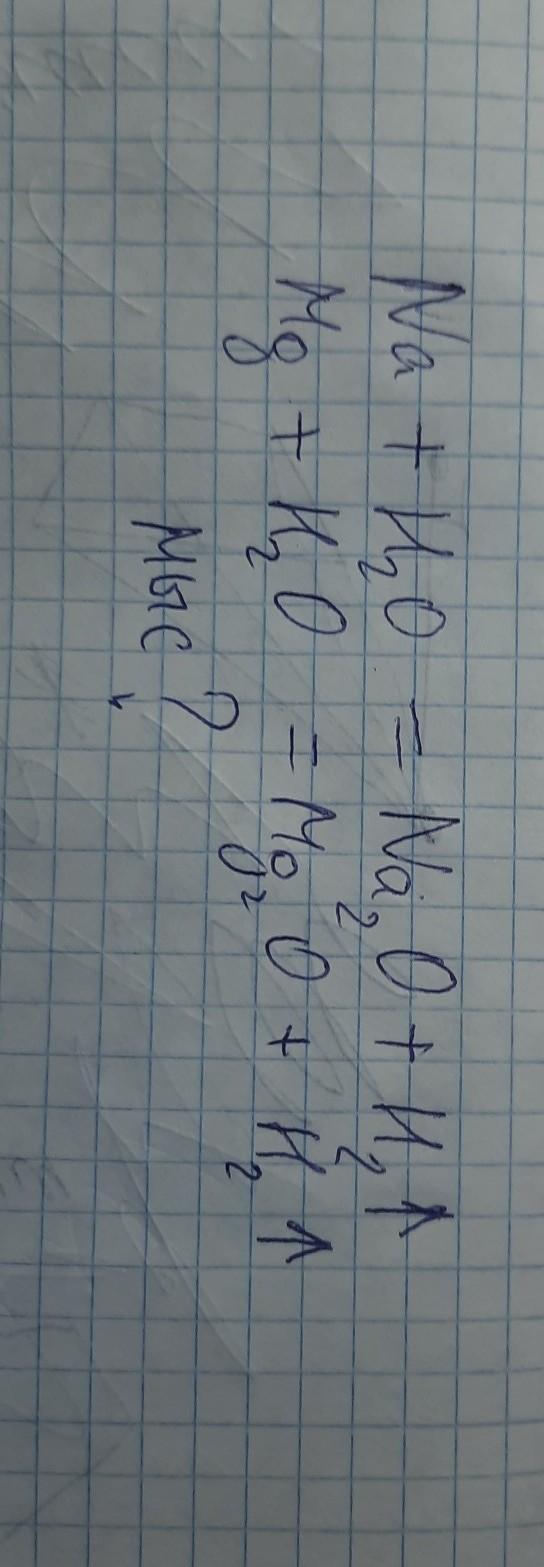 Na + H₂O = Na₂O + H₂↑
Mg + H₂O = Mg₂O + H₂↑
Мыс ?